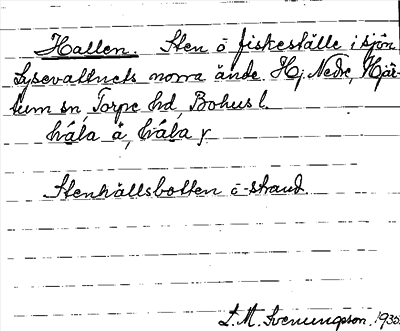 Hallen. Sten o fiskeställe i sjön
Lysevattnets norra ände. Hj. Nedre, Hjär-
tum sn, Torpe hd, Bohus l.
hála å, hála
Stenhällsbotten o strand.
L. M. Svenungsson. 1935.